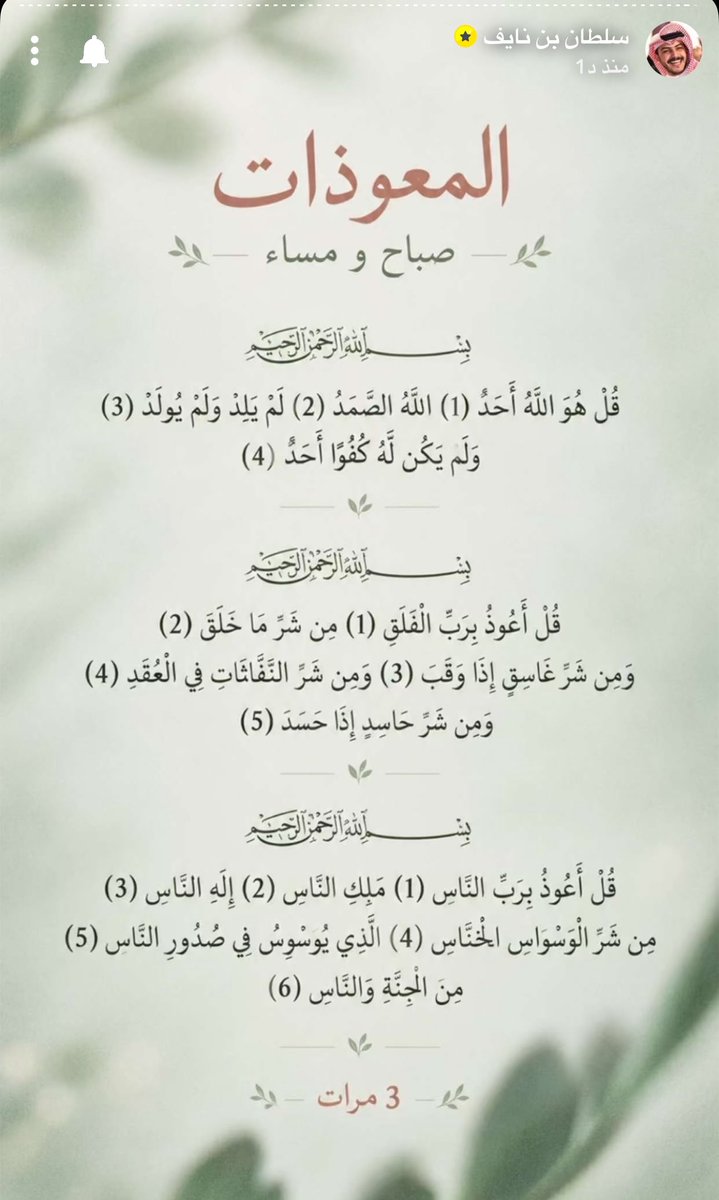 سلطان بن نايف
منذ د1
المعوذات
صباح و مساء
بِسْمِ اللَّهِ الرَّحْمَٰنِ الرَّحِيمِ
قُلْ هُوَ اللَّهُ أَحَدٌ (1) اللَّهُ الصَّمَدُ (2) لَمْ يَلِدْ وَلَمْ يُولَدْ (3)
وَلَم يَكُن لَّهُ كُفُوًا أَحَدٌ (4)
بِسْمِ اللَّهِ الرَّحْمَٰنِ الرَّحِيمِ
قُلْ أَعُوذُ بِرَبِّ الْفَلَقِ (1) مِن شَرِّ مَا خَلَقَ (2)
وَمِن شَرِّ غَاسِقٍ إِذَا وَقَبَ (3) وَمِن شَرِّ النَّفَّاثَاتِ فِي الْعُقَدِ (4)
وَمِن شَرِّ حَاسِدٍ إِذَا حَسَدَ (5)
بِسْمِ اللَّهِ الرَّحْمَٰنِ الرَّحِيمِ
قُلْ أَعُوذُ بِرَبِّ النَّاسِ (1) مَلِكِ النَّاسِ (2) إِلَهِ النَّاسِ (3)
مِن شَرِّ الْوَسْوَاسِ الْخَنَّاسِ (4) الَّذِي يُوَسْوِسُ فِي صُدُورِ النَّاسِ (5)
مِنَ الْجِنَّةِ وَالنَّاسِ (6)
3 مرات